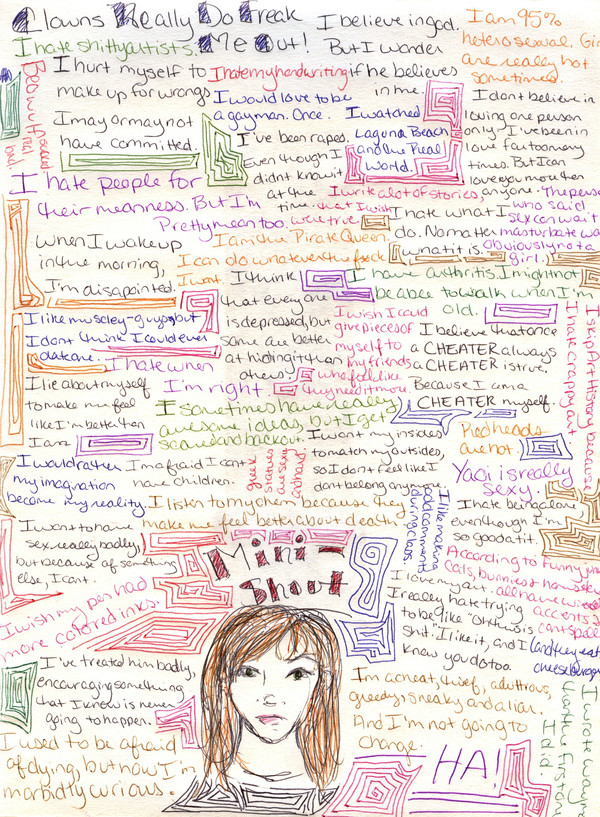 Clowns Really Do Freak
Me Out!
I believe in god.
But I wonder
if he believes
in me.
I am 95%
heterosexual. Girls
are really hot
sometimes.
I hate shitty artists.
I hurt myself to
make up for wrongs
I may or may not
have committed.
I hate my handwriting
I would love to be
a gay man. Once.
I watched
Laguna Beach
and the Real
World.
I don't believe in
loving one person
only. I've been in
love far too many
times. But I can
love you more than
anyone.
I've been raped.
Even though I
didn't know it
at the
time.
I hate people for
their meanness. But I'm
Pretty mean too.
I write a lot of stories,
that I wish
were true.
The person
who said
sex can wait
masturbate
obviously not a
girl.
I hate what I
do. No matter
what it is.
When I wake up
in the morning,
I'm disapointed.
I am the Pirate Queen.
I can do whatever the fuck
I want.
I think
that everyone
is depressed, but
some are better
at hiding it than
others.
I have arthritis. I might not
be able to walk when I'm
old.
I like muscley-guys, but
I don't think I could ever
date one.
I hate when
I'm right.
I wish I could
give pieces of
myself to
my friends
who feel like
they need it more
I believe that once
a CHEATER always
a CHEATER is true.
Because I am a
CHEATER myself.
I skip Art History because
I hate crappy art
I lie about myself
to make me feel
like I'm better than
I am
I sometimes have really
awesome ideas, but I get
scared and back out.
Red heads
are hot.
I would rather
my imagination
become my reality.
I'm afraid I can't
have children.
Greek
statues
are sexy
I want my insides
to match my outsides,
so I don't feel like I
don't belong anymore.
Yaoi is really
sexy.
I listen to mychem because they
make me feel better about death
I like making
odd comments
during class.
I hate being alone
even though I'm
so good at it.
I want to have
sex really badly,
but because of something
else, I can't.
Mini-
Shout
According to funny
cats, bunnies +
all have
accents &
can't spell
(and they eat
cheeseburgers
I love my art.
I really hate trying
to be like "Oh this is
shit." I like it, and I
know you do too.
I wish my pen had
more colored inks.
I've treated him badly,
encouraging something
that I know is never
going to happen.
I'm a cheat, thief, adultrous,
greedy, sneaky and a liar.
And I'm not going to
change.
I used to be afraid
of dying, but now I'm
morbidly curious.
HA!
I wrote
that the first day
I did